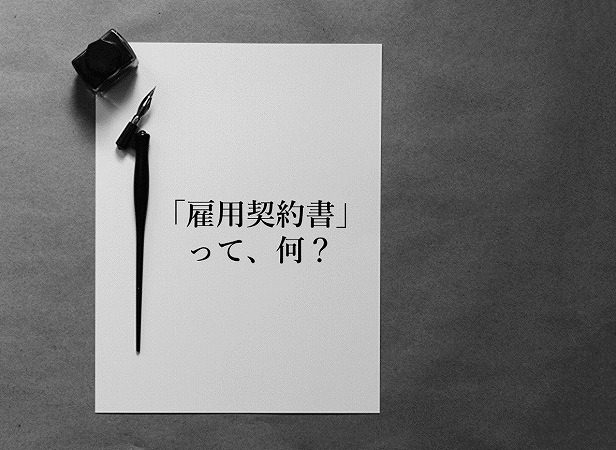 「雇用契約書」
って、何？